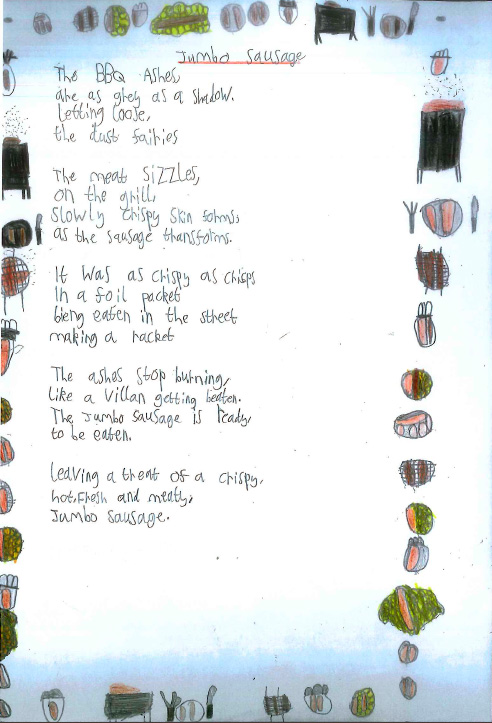 Jumbo Sausage
The BBQ Ashes,
are as grey as a shadow.
Letting loose,
the dust fairies
The meat sizzles,
on the grill,
slowly crispy skin forms,
as the sausage transforms.
It was as crispy as crisps
In a foil packet
bieng eaten in the street
making a racket
The ashes stop burning,
like a Villan getting beaten.
The Jumbo sausage is ready,
to be eaten.
Leaving a threat of a crispy,
hot, fresh and meaty,
Jumbo sausage.